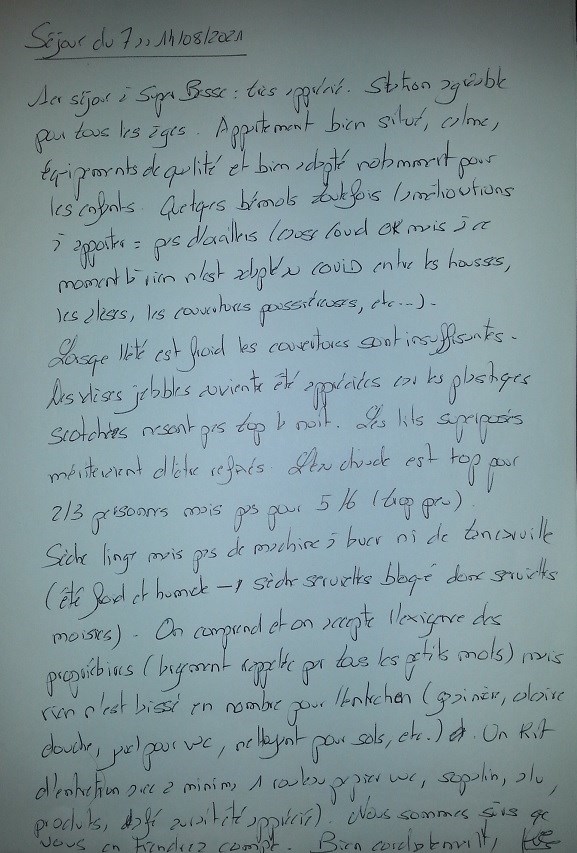 Séjour du 7 au 14/08/2021
1er séjour à Super Besse : très apprécié. Station agréable
pour tous les âges. Appartement bien situé, calme,
équipements de qualité et bien adapté notamment pour
les enfants. Quelques bémols toutefois (améliorations
à apporter = pas d'oreillers (cause covid OK mais à ce
moment là rien n'est adapté au covid entre les housses,
les alèses, les couvertures poussiéreuses, etc...).
Lorsque l'été est froid les couvertures sont insuffisantes.
Des alèses jetables auraient été appréciées car les plastiques
scotchés ne sont pas top la nuit. Les lits superposés
mériteraient d'être refixés. L'eau chaude est top pour
2/3 personnes mais pas pour 5/6 (trop peu)
Sèche linge mais pas de machine à laver ni de tancarville
(été froid et humide → sèche serviettes bloqué donc serviettes
moisies). On comprend et on accepte l'exigence des
propriétaires (largement rappelée par tous les petits mots) mais
rien n'est laissé en nombre pour l'entretien (
douche, gel pour wc, nettoyant pour sols, etc.). Un Kit
d'entretien avec a minima 1 rouleau papier wc, sopalin, alu,
produits, café aurait été apprécié). Nous sommes sûrs que
vous en tiendrez compte. Bien cordialement,